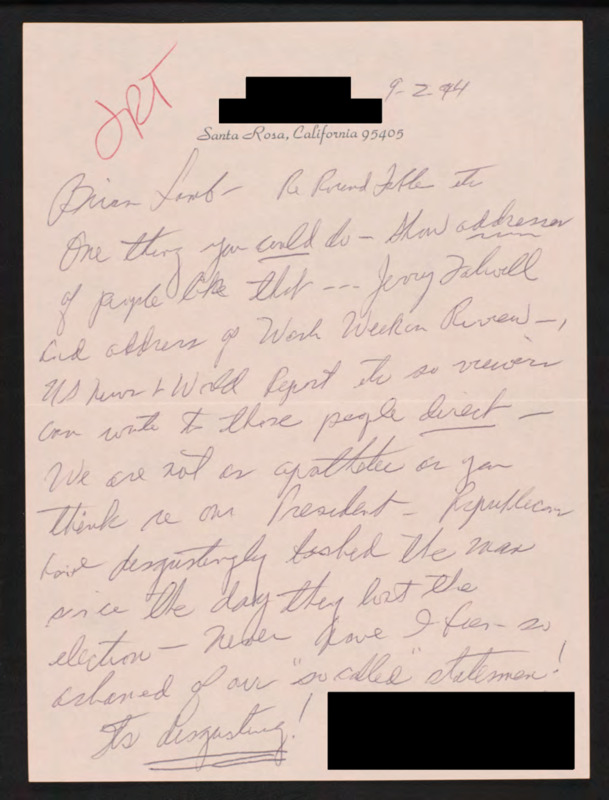 JRT
9-2-94
Santa Rosa, California 95405
Brian Lamb - Re Round Table etc
One thing you could do - Show addresses
of people like that --- Jerry Falwell
and address of Wash Week in Review -,
US News & World Report etc so viewers
can write to those people direct -
We are not as apathetic as you
think re our President - Republicans
have disgustingly bashed the man
since the day they lost the
election - never have I been so
ashamed of our "so called" statesmen!
Its disgusting!